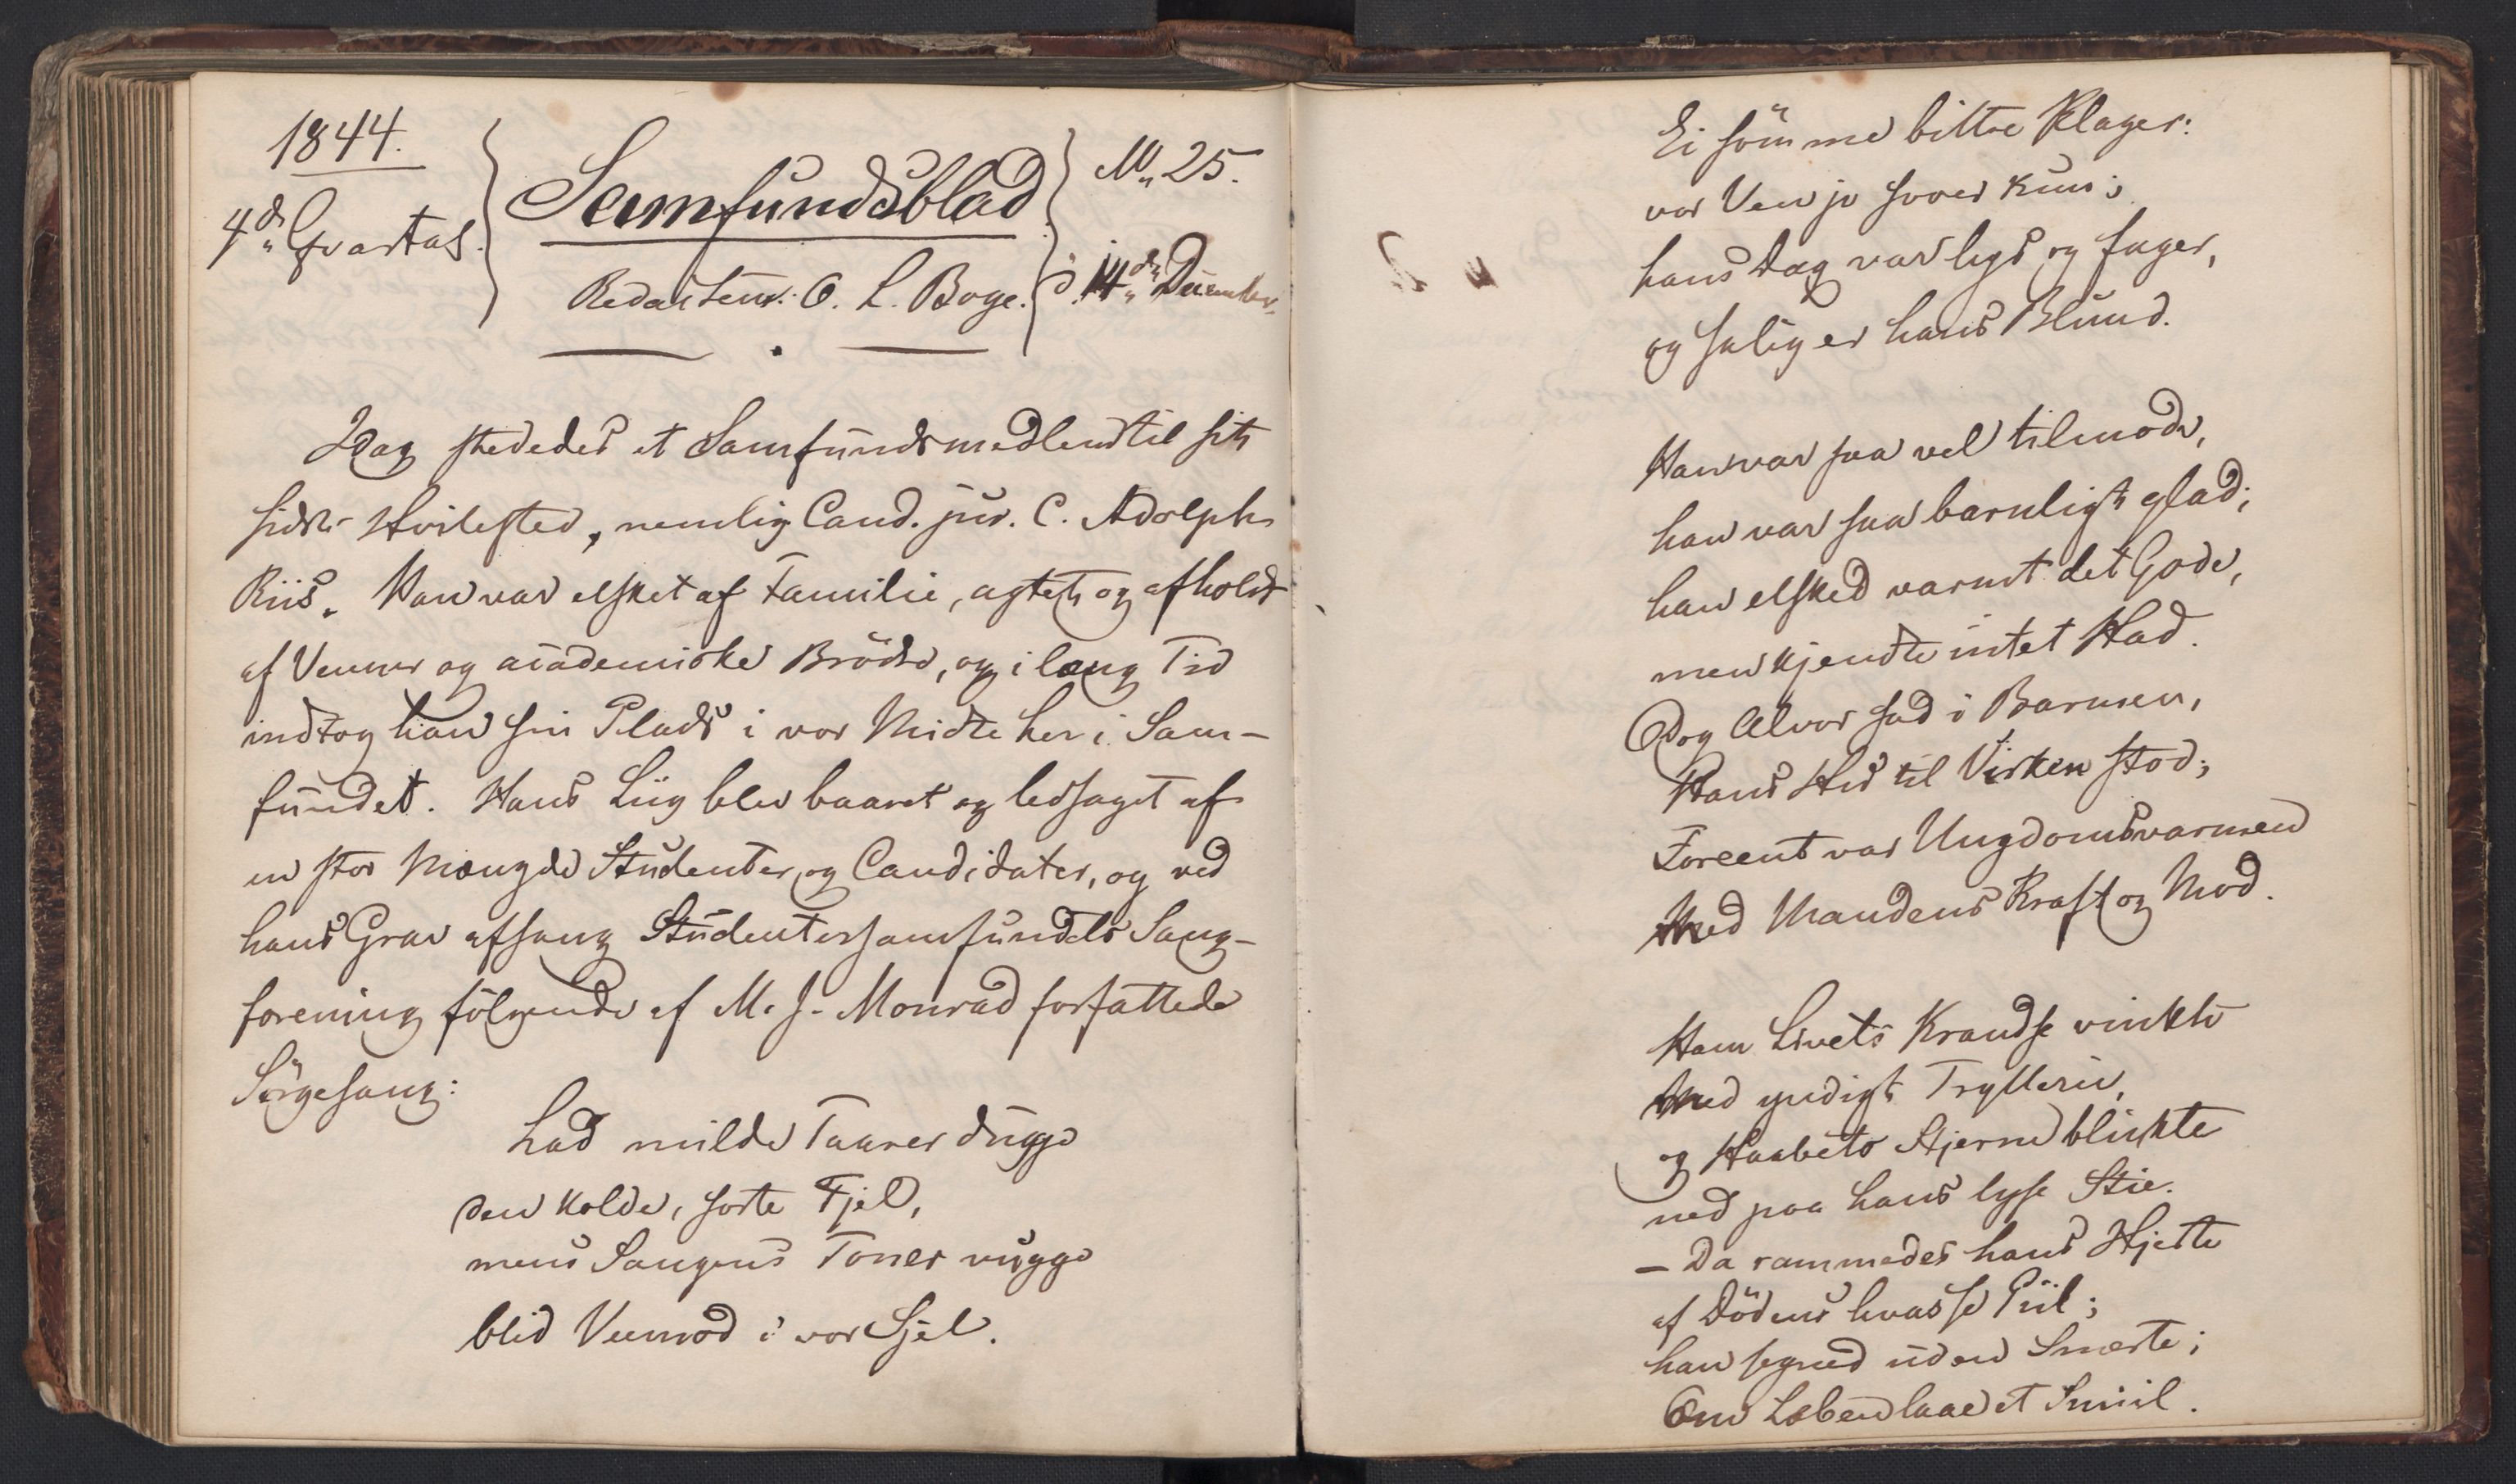 1844.
4de Qvartal.
Samfundsblad
Redakteur: O. L. Boye.
No 25.
d. 14de December.
Idag stededes et Samfundsmedlem til sit
sidste Hvilested, nemlig Cand. jur. C. Adolph
Riis. Han var elsket af Familie, agtet og afholdt
af Venner og academiske Brödre, og i lang Tid
indtog han sin Plads i vor Midte her i Sam-
fundet. Hans Liig blev baaret og ledsaget af
en stor Mængde Studenter og Candidater, og ved
hans Grav afsang Studentersamfundets Sang-
forening fölgende af M. J. Monrad forfattede
Sörgesang:
Lad milde Taarer dugge
den kolde, sorte Fjel,
mens Sangens Toner vugge
blid Veemod i vor Sjel.
Ei sömme bittre Klager:
vor Ven jo sover kun;
hans Dag var lys og fager,
og salig er hans Blund.
Han var saa vel tilmode,
han var saa barnligt glad;
han elsked varmt det Gode,
men kjendte intet Had.
Dog Alvor sad i Barmen,
Hans Hu til Virken stod;
Foreent var Ungdomsvarmen
Med Mandens Kraft og Mod.
Ham Livets Krandse vinkte
Med yndigt Trylleri,
og Haabets Stjerne blinkte
ned paa hans lyse Stie.
– Da rammedes hans Hjerte
af Dödens hvasse Piil;
han segned uden Smerte;
Om Læben laae et Smiil.